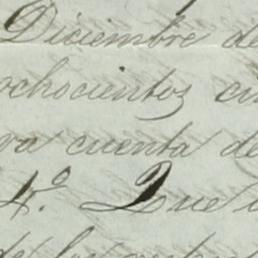 Diciembre de
ochocientos
cuenta de
4.º Que